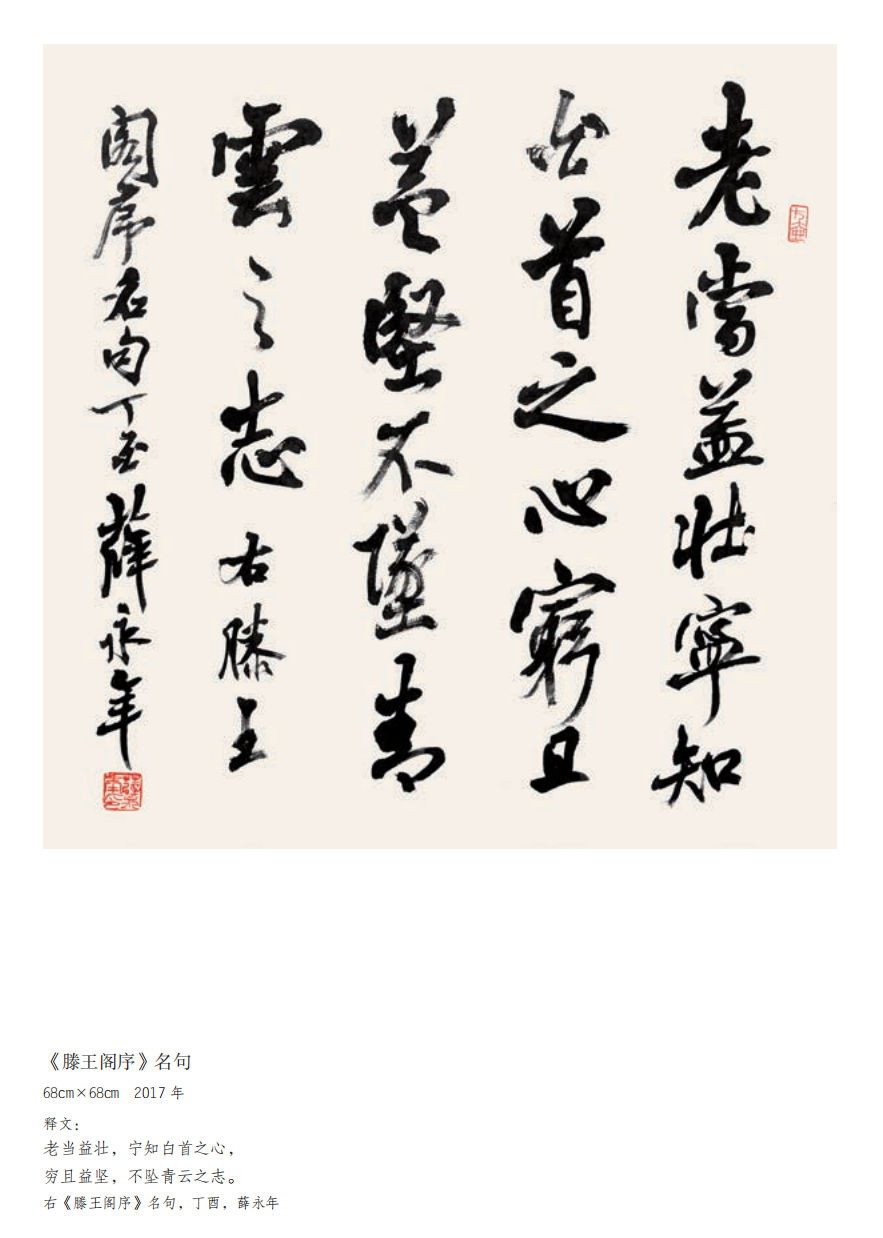 老當益壯寧知
白首之心窮且
益堅不墜青
雲之志 右滕王
閣序名句丁酉薛永年
《滕王阁序》名句
68cm×68cm 2017 年
释文：
老当益壮，宁知白首之心，
穷且益坚，不坠青云之志。
右《滕王阁序》名句，丁酉，薛永年